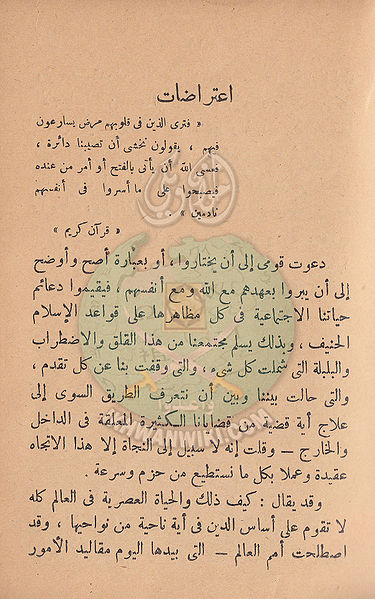 اعتراضات
« فترى الذين فى قلوبهم مرض يسارعون
فيهم ، يقولون نخشى أن تصيبنا دائرة ،
فعسى الله أن يأتى بالفتح أو أمر من عنده
فيصبحوا على ما أسروا فى أنفسهم
نادمين » .
« قرآن كريم »
دعوت قومى إلى أن يختاروا ، أو بعبارة أصح وأوضح
إلى أن يبروا بعهدهم مع الله ومع أنفسهم ، فيقيموا دعائم
حياتنا الاجتماعية فى كل مظاهرها على قواعد الإسلام
الحنيف ، وبذلك يسلم مجتمعنا من هذا القلق والاضطراب
والبلبلة التى شملت كل شىء ، والتى وقفت بنا عن كل تقدم ،
والتى حالت بيننا وبين أن نتعرف الطريق السوى إلى
علاج أية قضية من قضايانا الكثيرة المعلقة فى الداخل
والخارج — وقلت إنه لا سبيل إلى النجاة إلا هذا الاتجاه
عقيدة وعملا بكل ما نستطيع من حزم وسرعة .
وقد يقال : كيف ذلك والحياة العصرية فى العالم كله
لا تقوم على أساس الدين فى أية ناحية من نواحيها ، وقد
اصطلحت أمم العالم — التى بيدها اليوم مقاليد الأمور